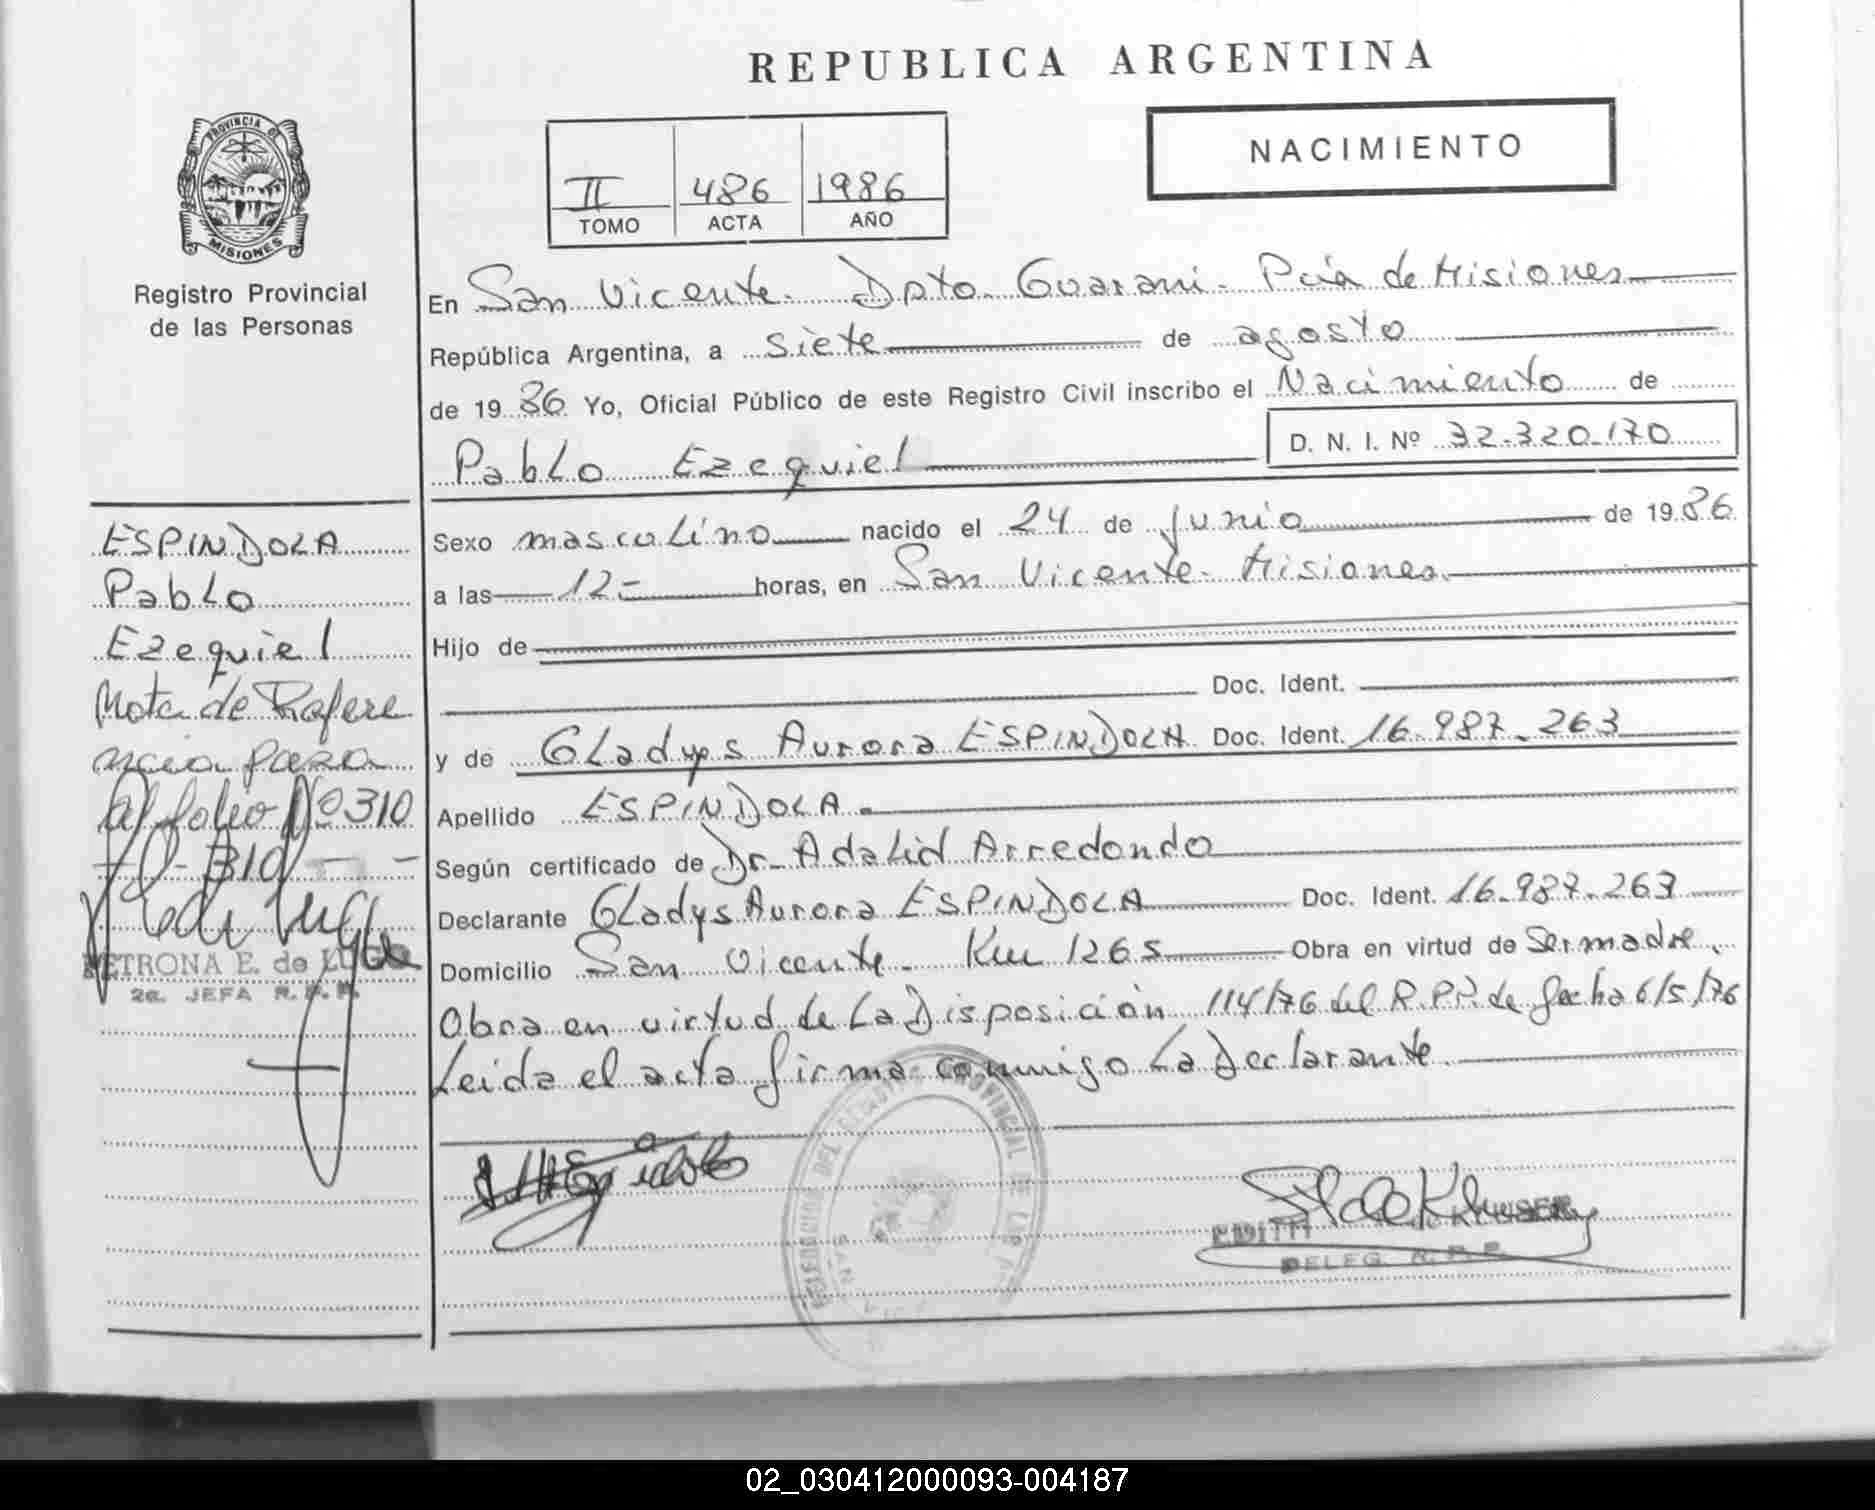 REPUBLICA ARGENTINA
PROVINCIA DE
MISIONES
Registro Provincial
de las Personas
II 486 1986
TOMO ACTA AÑO
NACIMIENTO
En San Vicente. Dpto. Guarani. Pcia de Misiones
República Argentina, a siete de agosto
de 1986 Yo, Oficial Público de este Registro Civil inscribo el Nacimiento de
Pablo Ezequiel D. N. I. Nº 32.320.170
ESPINDOLA
Pablo
Ezequiel
Nota de Refere
ncia pasa
al folio Nº 310
310
PETRONA E. de LUGO
2a. JEFA R. P. P.
Sexo masculino nacido el 24 de Junio de 1986
a las 12 horas, en San Vicente. Misiones.
Hijo de
Doc. Ident.
y de Gladys Aurora ESPINDOLA Doc. Ident. 16.987.263
Apellido ESPINDOLA.
Según certificado de Dr. Adalid Arredondo
Declarante Gladys Aurora ESPINDOLA Doc. Ident. 16.987.263
Domicilio San Vicente. Km 1265 Obra en virtud de Ser madre.
Obra en virtud de La Disposición 114/76 del R.P.P. de fecha 6/5/76
Leida el acta firma conmigo La Declarante.
PROVINCIAL DE LAS
EDITH
DELEG. R. P. P.
02_030412000093-004187